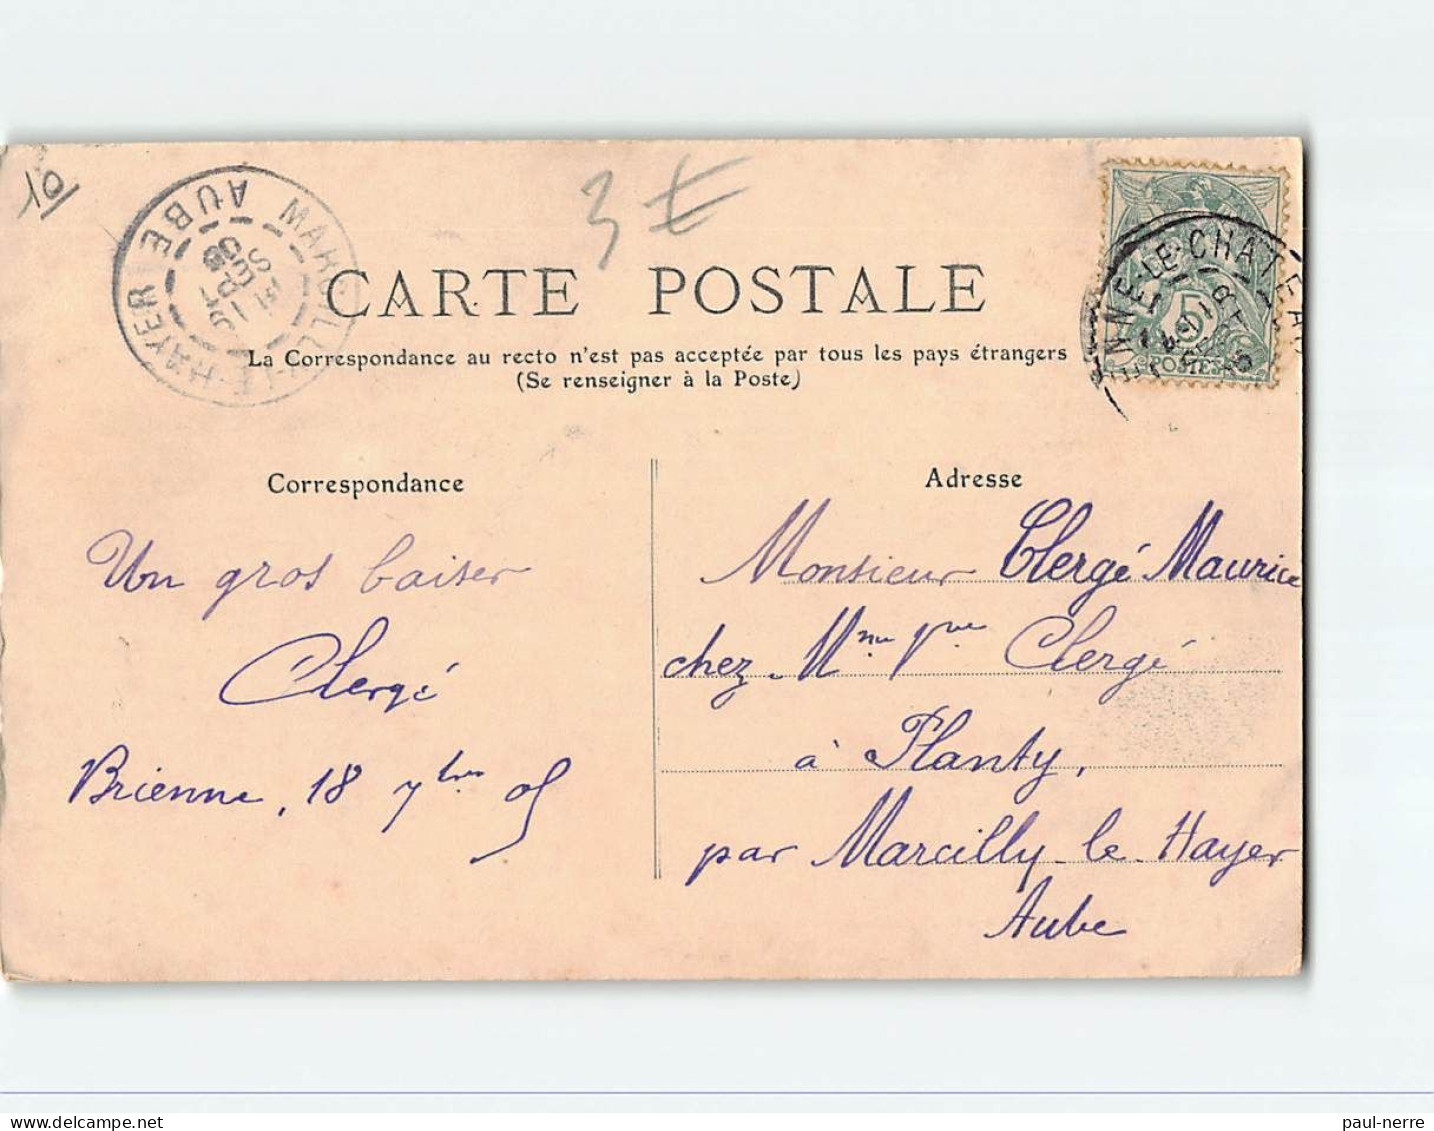 10
MARCILLY-LE-HAYER AUBE
3 €
CARTE POSTALE
La Correspondance au recto n'est pas acceptée par tous les pays étrangers
(Se renseigner à la Poste)
5
POSTES
LE-CHATEAU
Correspondance
Un gros baiser
Clergé
Brienne, 18 7bre 05
Adresse
Monsieur Clergé Maurice
chez Mme Vve Clergé
à Planty,
par Marcilly-le-Hayer
Aube
paul-nerre